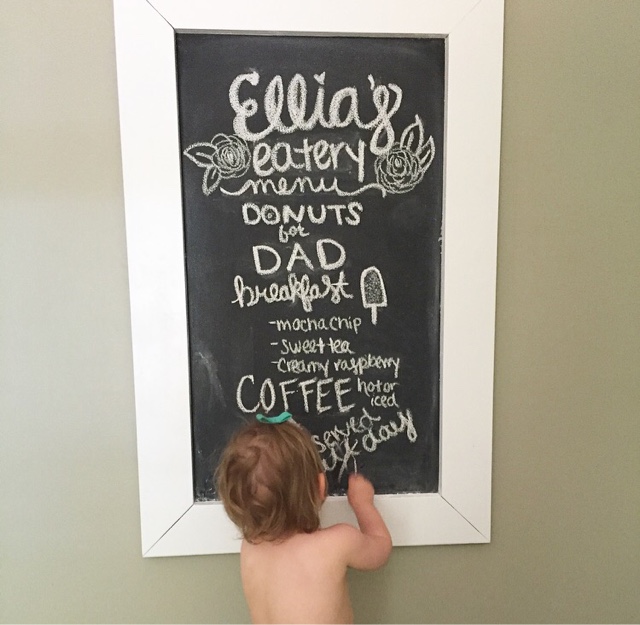 Ellia's
eatery
menu
DONUTS
for
DAD
breakfast
-mocha chip
-sweet tea
-creamy raspberry
COFFEE hot or
iced
served
day